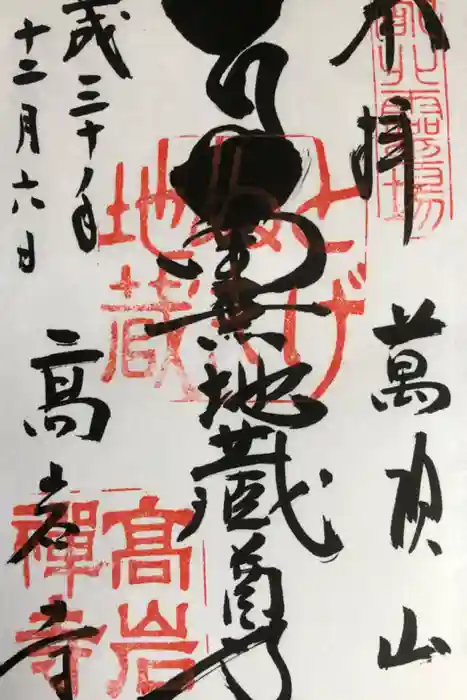 奉拝 萬頂山
地蔵尊
成三十年
十二月六日
高岩寺
靈場
とげぬき
地蔵
高岩
禪寺